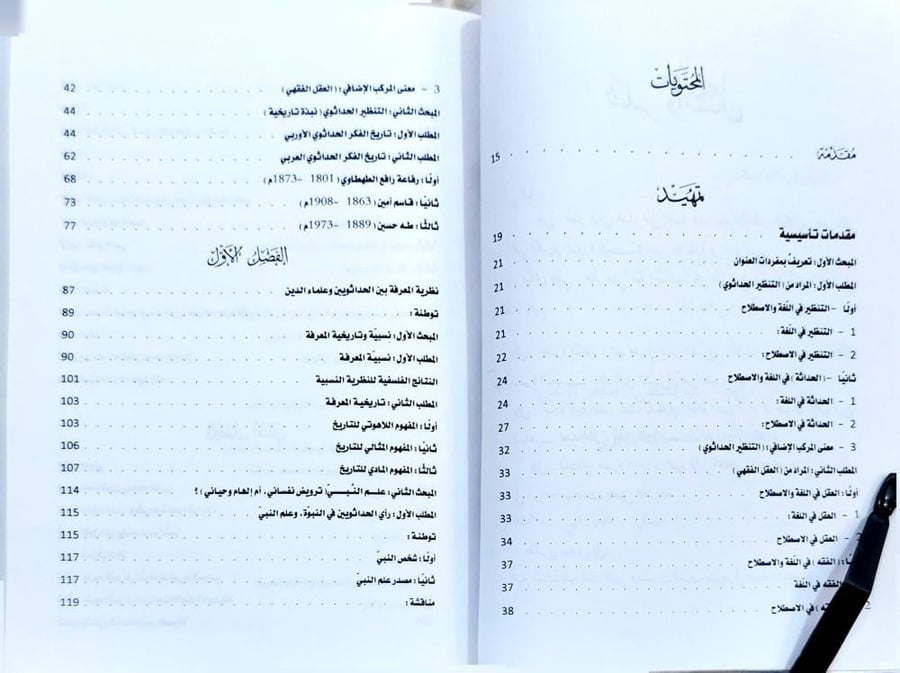 المحتويات
مقدمة 15
تمهيد
مقدمات تأسيسية 19
المبحث الأول: تعريف بمفردات العنوان 21
المطلب الأول: المراد من (التنظير الحداثوي) 21
أولًا - التنظير في اللغة والاصطلاح 21
1 - التنظير في اللغة: 21
2 - التنظير في الاصطلاح: 22
ثانيًا - (الحداثة) في اللغة والاصطلاح 24
1 - الحداثة في اللغة: 24
2 - الحداثة في الاصطلاح: 27
3 - معنى المركب الإضافي: (التنظير الحداثوي) 32
المطلب الثاني: المراد من (العقل الفقهي) 33
أولًا: العقل في اللغة والاصطلاح 33
1 - العقل في اللغة: 33
العقل في الاصطلاح 34
(الفقه) في اللغة والاصطلاح 37
الفقه في اللغة 37
2 في الاصطلاح 38
3 - معنى المركب الإضافي: (العقل الفقهي) 42
المبحث الثاني: التنظير الحداثوي (نبذة تاريخية) 44
المطلب الأول: تاريخ الفكر الحداثوي الأوربي 44
المطلب الثاني: تاريخ الفكر الحداثوي العربي 62
أولًا: رفاعة رافع الطهطاوي (1801 -1873م) 68
ثانيًا: قاسم أمين (1863 -1908م) 73
ثالثًا: طه حسين (1889 -1973م) 77
الفصل الأول
نظرية المعرفة بين الحداثويين وعلماء الدين 87
توطئة: 89
المبحث الأول: نسبيّة وتاريخية المعرفة 90
المطلب الأول: نسبيّة المعرفة 90
النتائج الفلسفية للنظرية النسبية 101
المطلب الثاني: تاريخية المعرفة 103
أولًا: المفهوم اللاهوتي للتاريخ 103
ثانيًا: المفهوم المثالي للتاريخ 106
ثالثًا: المفهوم المادي للتاريخ 107
المبحث الثاني: علم النّبيّ (ترويض نفساني، أم إلهام وحياني)؟ 114
المطلب الأول: رأي الحداثويين في النبوّة، وعلم النبيّ 115
توطئة: 115
أولًا: شخص النبيّ 117
ثانيًا: مصدر علم النبيّ 117
مناقشة: 119